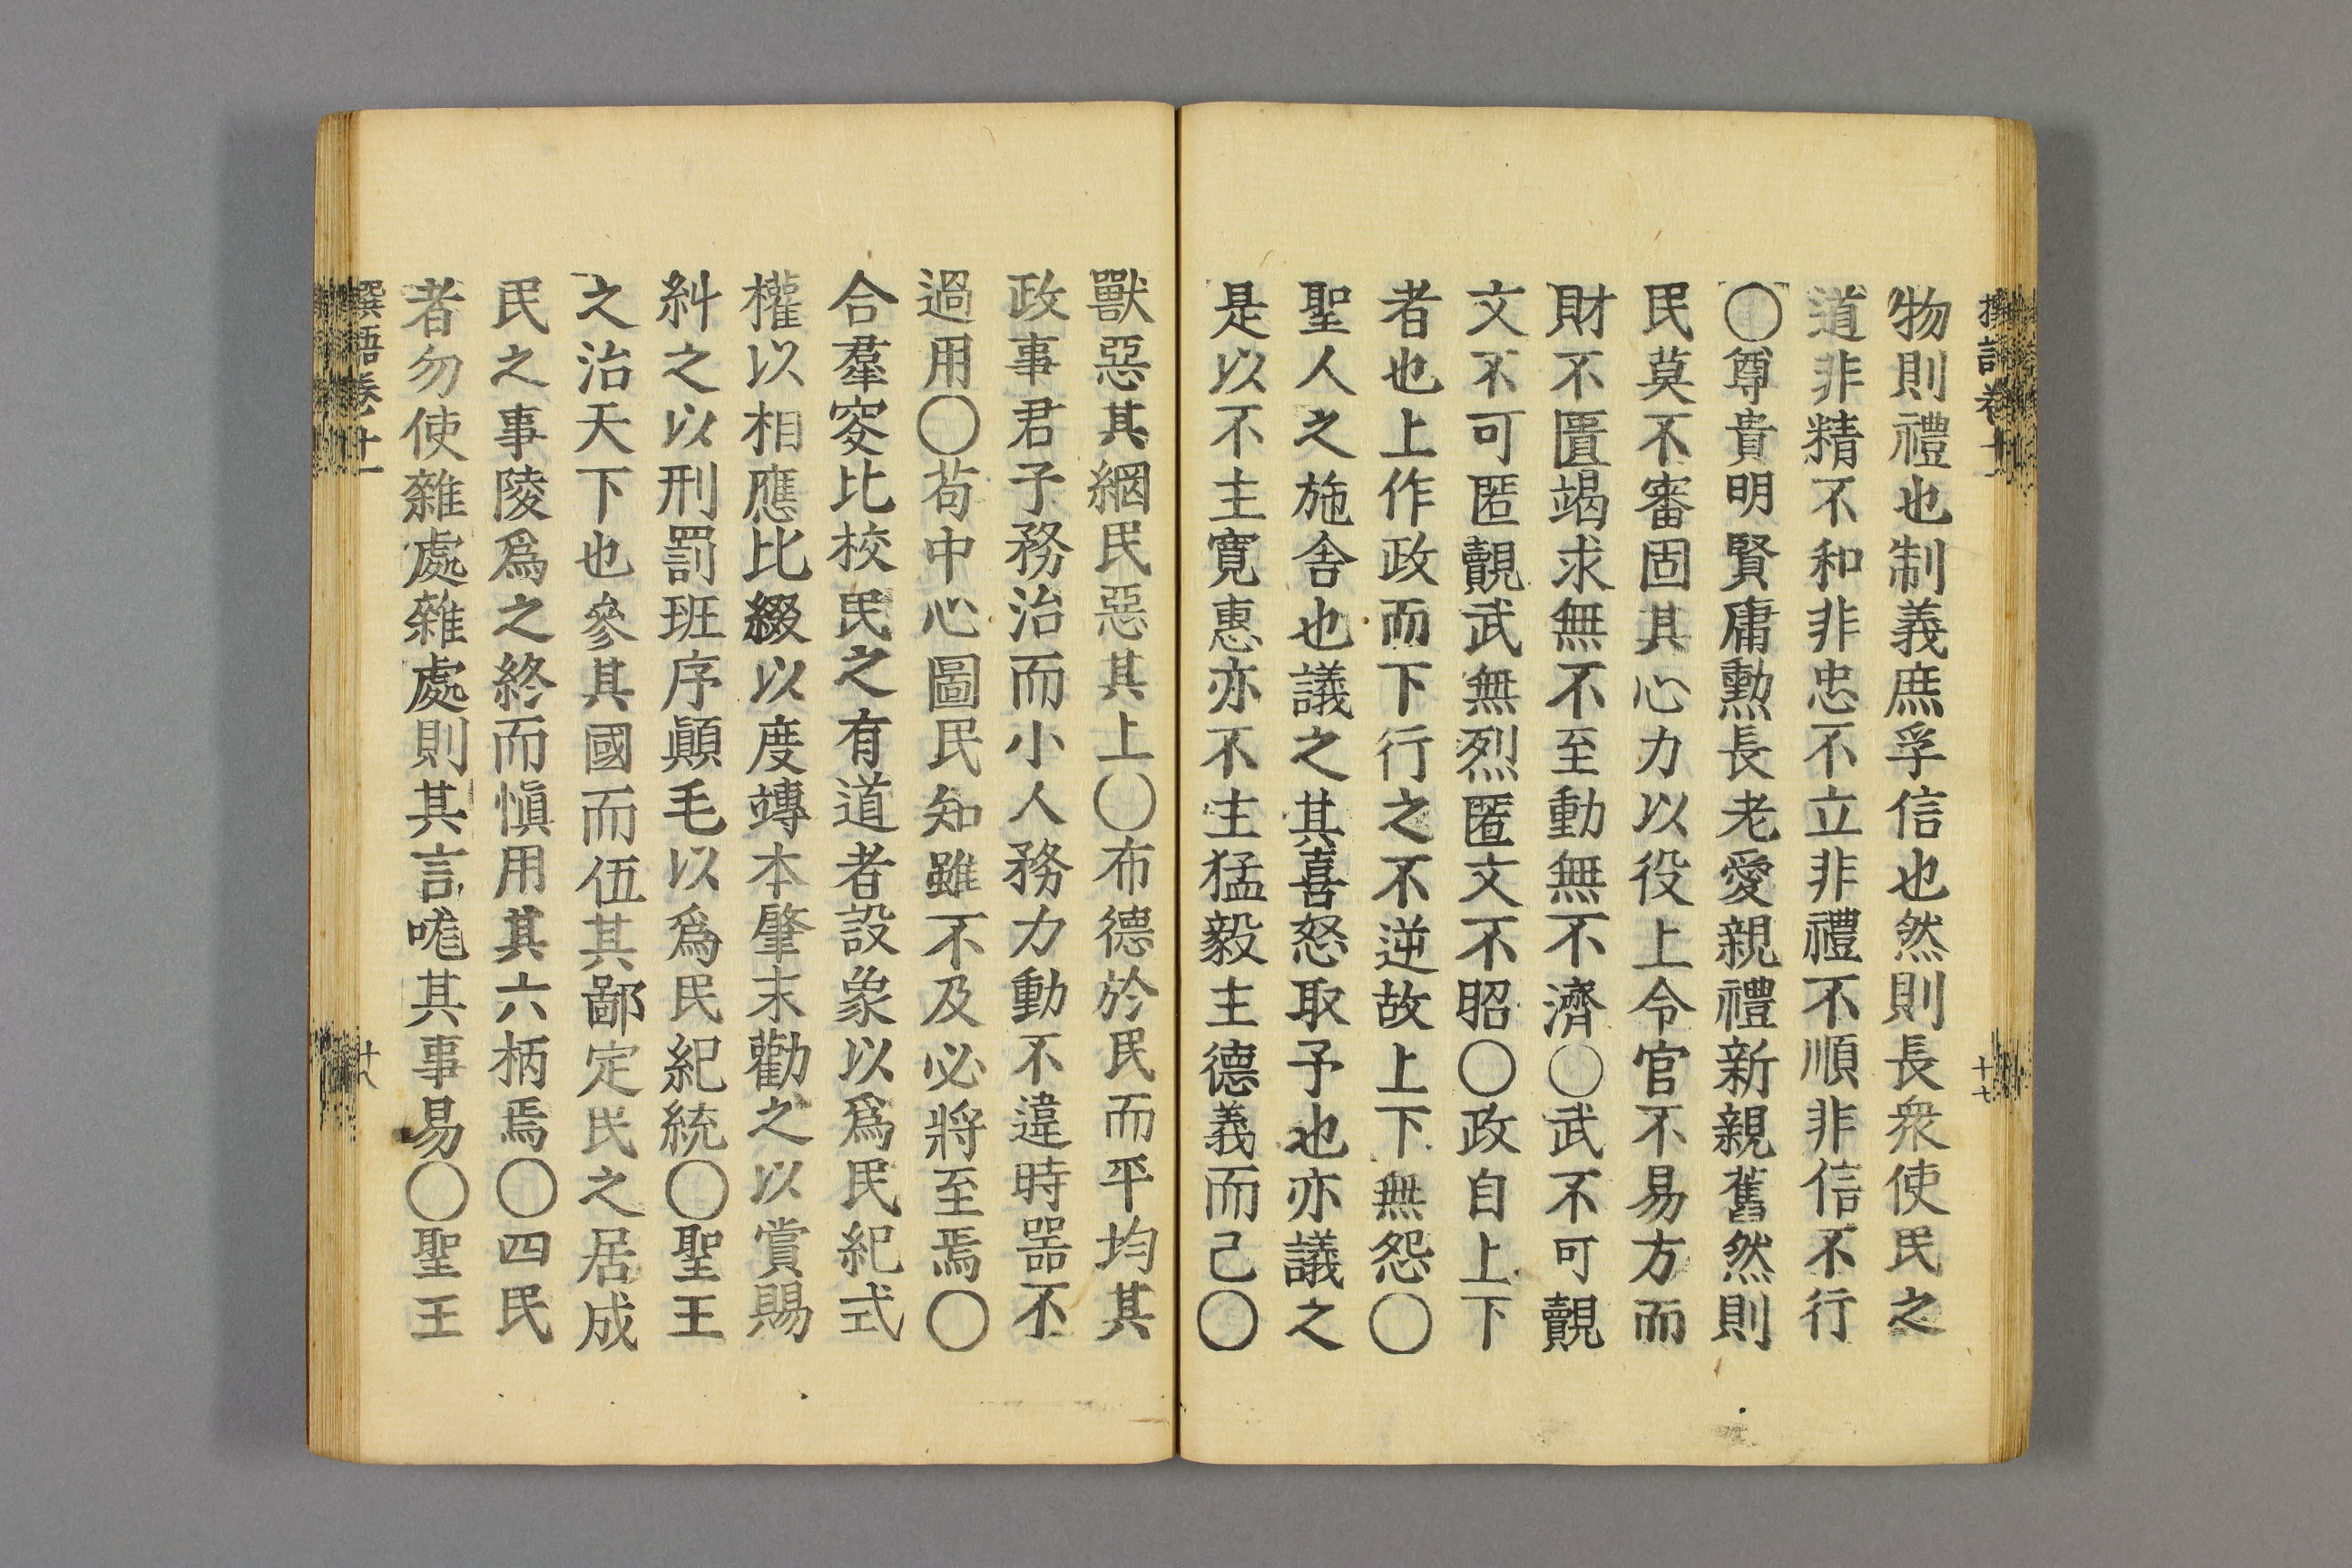 撰語卷十一
十七
物則禮也制義庶孚信也然則長衆使民之
道非精不和非忠不立非禮不順非信不行
〇尊貴明賢庸勲長老愛親禮新親舊然則
民莫不審固其心力以役上令官不易方而
財不匱竭求無不至動無不濟〇武不可覿
文不可匿覿武無烈匿文不昭〇政自上下
者也上作政而下行之不逆故上下無怨〇
聖人之施舎也議之其喜怒取予也亦議之
是以不主寛惠亦不主猛毅主德義而已〇
獸惡其網民惡其上〇布德於民而平均其
政事君子務治而小人務力動不違時噐不
過用〇苟中心圖民知雖不及必將至焉〇
合羣窔比校民之有道者設象以爲民紀式
權以相應比綴以度竱本肇末勸之以賞賜
糾之以刑罰班序顚毛以爲民紀統〇聖王
之治天下也參其國而伍其鄙定民之居成
民之事陵爲之終而愼用其六柄焉〇四民
者勿使雜處雜處則其言哤其事易〇聖王
撰語卷十一
十八